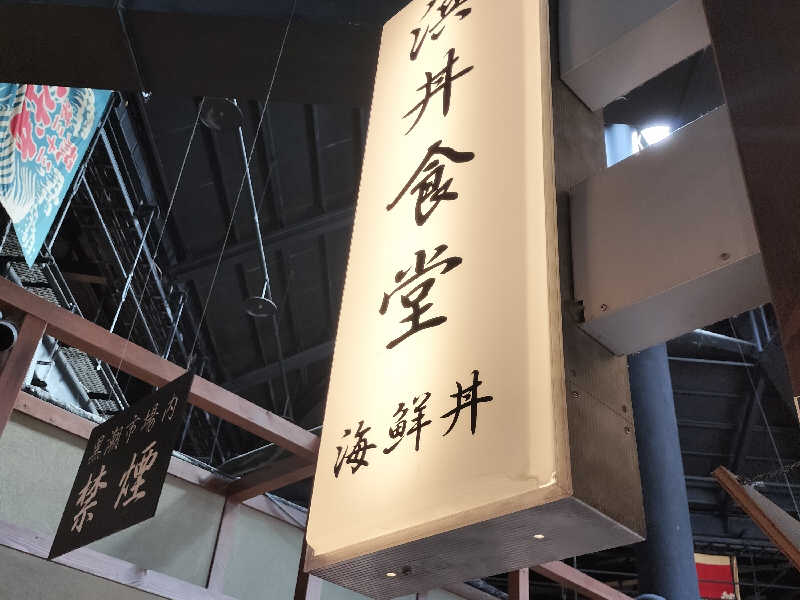 浜丼食堂
海鮮丼
黒潮市場内
禁煙